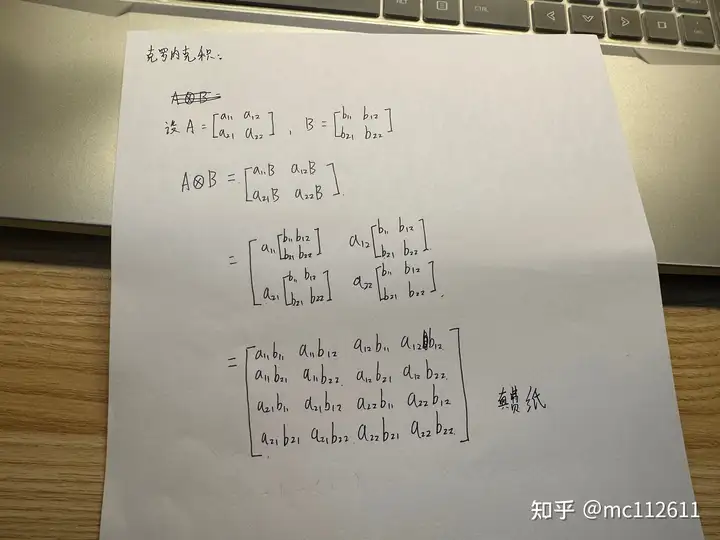 克罗内克积:
A⊗B=
设 A = [a₁₁ a₁₂
a₂₁ a₂₂] , B = [b₁₁ b₁₂
b₂₁ b₂₂]
A⊗B = [a₁₁B a₁₂B
a₂₁B a₂₂B].
= [a₁₁[b₁₁ b₁₂
b₂₁ b₂₂] a₁₂[b₁₁ b₁₂
b₂₁ b₂₂]
a₂₁[b₁₁ b₁₂
b₂₁ b₂₂] a₂₂[b₁₁ b₁₂
b₂₁ b₂₂]].
= [a₁₁b₁₁ a₁₁b₁₂ a₁₂b₁₁ a₁₂b₁₂
a₁₁b₂₁ a₁₁b₂₂ a₁₂b₂₁ a₁₂b₂₂
a₂₁b₁₁ a₂₁b₁₂ a₂₂b₁₁ a₂₂b₁₂
a₂₁b₂₁ a₂₁b₂₂ a₂₂b₂₁ a₂₂b₂₂]
真费纸
知乎 @mc112611